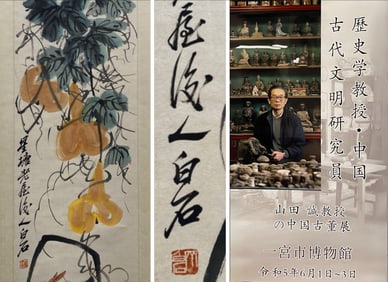 星塘老屋後人白石
屋後人白石
歴史学教授・中国
古代文明研究員
山田 誠教授
の中国古董展
一宮市博物館
令和5年6月1日~3日